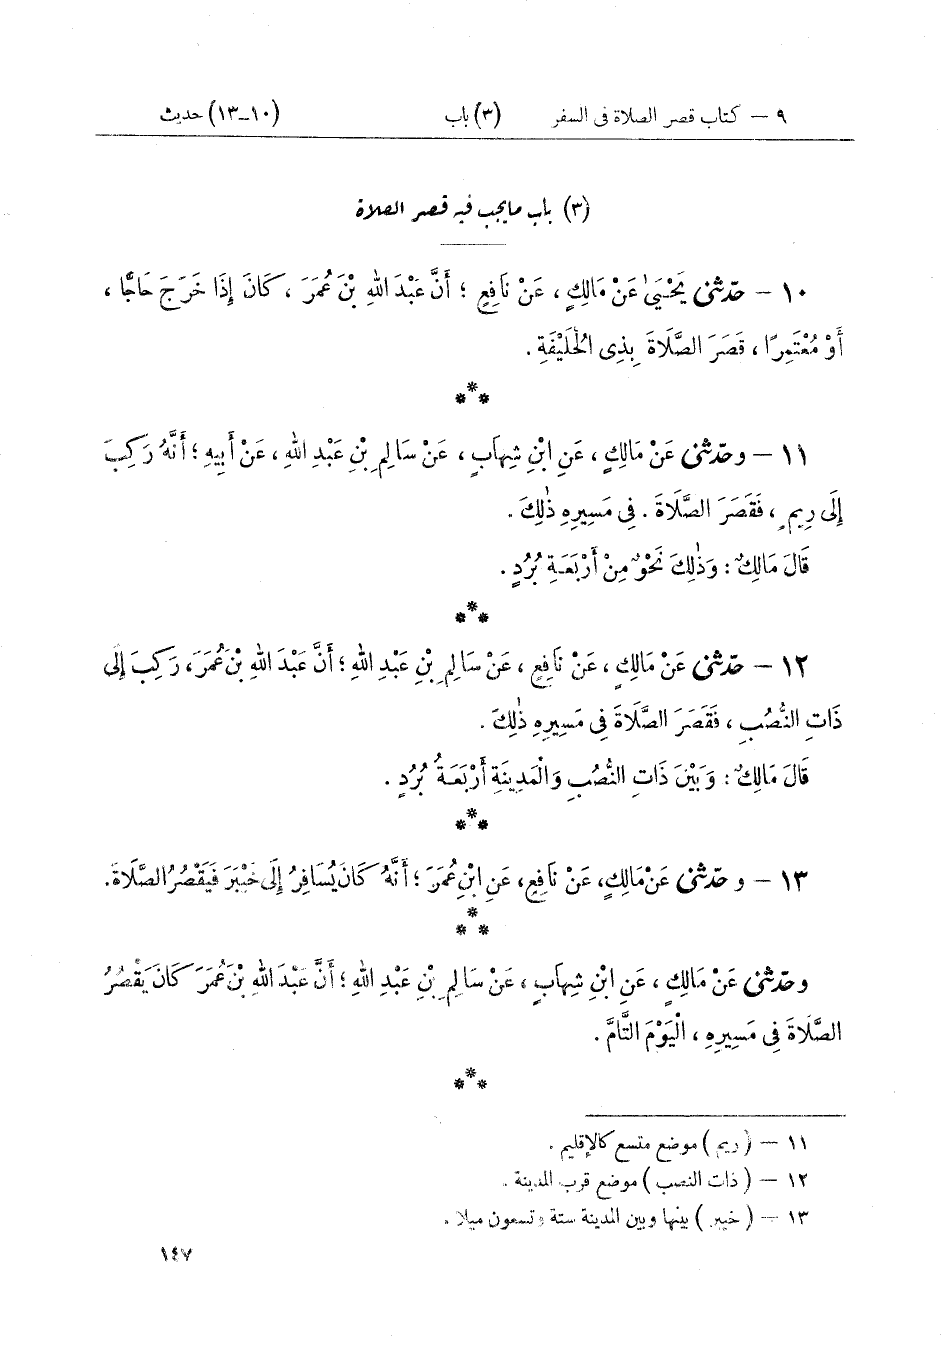 ٩ – كتاب قصر الصلاة فى السفر (٣) باب (١٠–١٣) حديث
(٣) باب مايجب فيه قصر الصلاة
١٠ – حدّثنى يَحْيَىٰ عَنْ مَالِكٍ ، عَنْ نَافِعٍ ؛ أَنَّ عَبْدَ اللهِ بْنَ عُمَرَ ، كَانَ إِذَا خَرَجَ حَاجًّا ،
أَوْ مُعْتَمِرًا ، قَصَرَ الصَّلَاةَ بِذِى الْحُلَيْفَةِ .
***
١١ – وحدّثنى عَنْ مَالِكٍ ، عَنِ ابْنِ شِهَابٍ ، عَنْ سَالِمِ بْنِ عَبْدِ اللهِ ، عَنْ أَبِيهِ ؛ أَنَّهُ رَكِبَ
إِلَى رِيمٍ ، فَقَصَرَ الصَّلَاةَ . فِى مَسِيرِهِ ذٰلِكَ .
قَالَ مَالِكٌ : وَذٰلِكَ نَحْوٌ مِنْ أَرْبَعَةِ بُرُدٍ .
***
١٢ – حدّثنى عَنْ مَالِكٍ ، عَنْ نَافِعٍ ، عَنْ سَالِمِ بْنِ عَبْدِ اللهِ ؛ أَنَّ عَبْدَ اللهِ بْنَ عُمَرَ ، رَكِبَ إِلَى
ذَاتِ النُّصُبِ ، فَقَصَرَ الصَّلَاةَ فِى مَسِيرِهِ ذٰلِكَ .
قَالَ مَالِكٌ : وَبَيْنَ ذَاتِ النُّصُبِ وَالْمَدِينَةِ أَرْبَعَةُ بُرُدٍ .
***
١٣ – وحدّثنى عَنْ مَالِكٍ، عَنْ نَافِعٍ، عَنِ ابْنِ عُمَرَ ؛ أَنَّهُ كَانَ يُسَافِرُ إِلَى خَيْبَرَ فَيَقْصُرُ الصَّلَاةَ.
***
وحدّثنى عَنْ مَالِكٍ ، عَنِ ابْنِ شِهَابٍ ، عَنْ سَالِمِ بْنِ عَبْدِ اللهِ ؛ أَنَّ عَبْدَ اللهِ بْنَ عُمَرَ كَانَ يَقْصُرُ
الصَّلَاةَ فِى مَسِيرِهِ ، الْيَوْمَ التَّامَّ .
***
١١ – (ريم) موضع متسع كالإقليم .
١٢ – (ذات النصب) موضع قرب المدينة .
١٣ – (خيبر) بينها وبين المدينة ستة وتسعون ميلا .
١٤٧